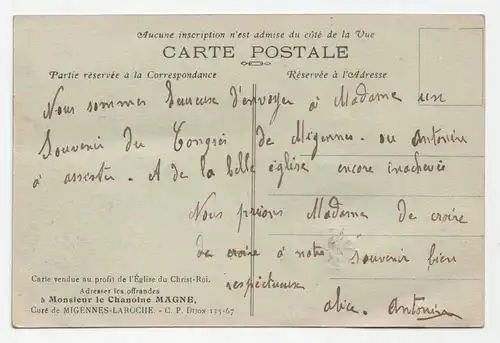 Aucune inscription n'est admise du côté de la Vue
CARTE POSTALE
Partie réservée à la Correspondance
Réservée à l'Adresse
Nous sommes heureux d'envoyer à Madame un
Souvenir du Congrès de Migennes - ou Antonin
à assisté. A de la belle église encore inachevée
Nous prions Madame de croire
de croire à notre souvenir bien
respectueux
alice. Antonin
Carte vendue au profit de l'Église du Christ-Roi.
Adresser les offrandes
à Monsieur le Chanoine MAGNE,
Curé de MIGENNES-LAROCHE. - C. P. DIJON 125-67